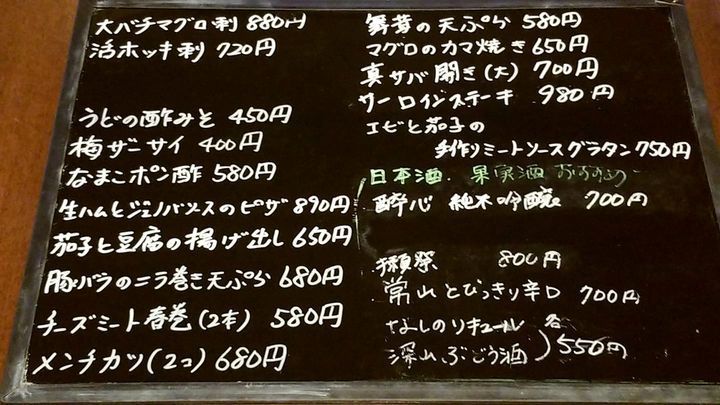 大バチマグロ刺 880円
活ホッキ刺 720円
うどの酢みそ 450円
梅ザーサイ 400円
なまこポン酢 580円
生ハムとジェノバソースのピザ 890円
茄子と豆腐の揚げ出し 650円
豚バラのニラ巻き天ぷら 680円
チーズミート春巻(2本) 580円
メンチカツ(2コ) 680円
舞茸の天ぷら 580円
マグロのカマ焼き 650円
真サバ開き(大) 700円
サーロインステーキ 980円
エビと茄子の
手作りミートソースグラタン 750円
日本酒・果実酒 おすすめ
酔心 純米吟醸 700円
獺祭 800円
常山 とびっきり辛口 700円
のリキュール 各
深山ぶどう酒 ) 550円